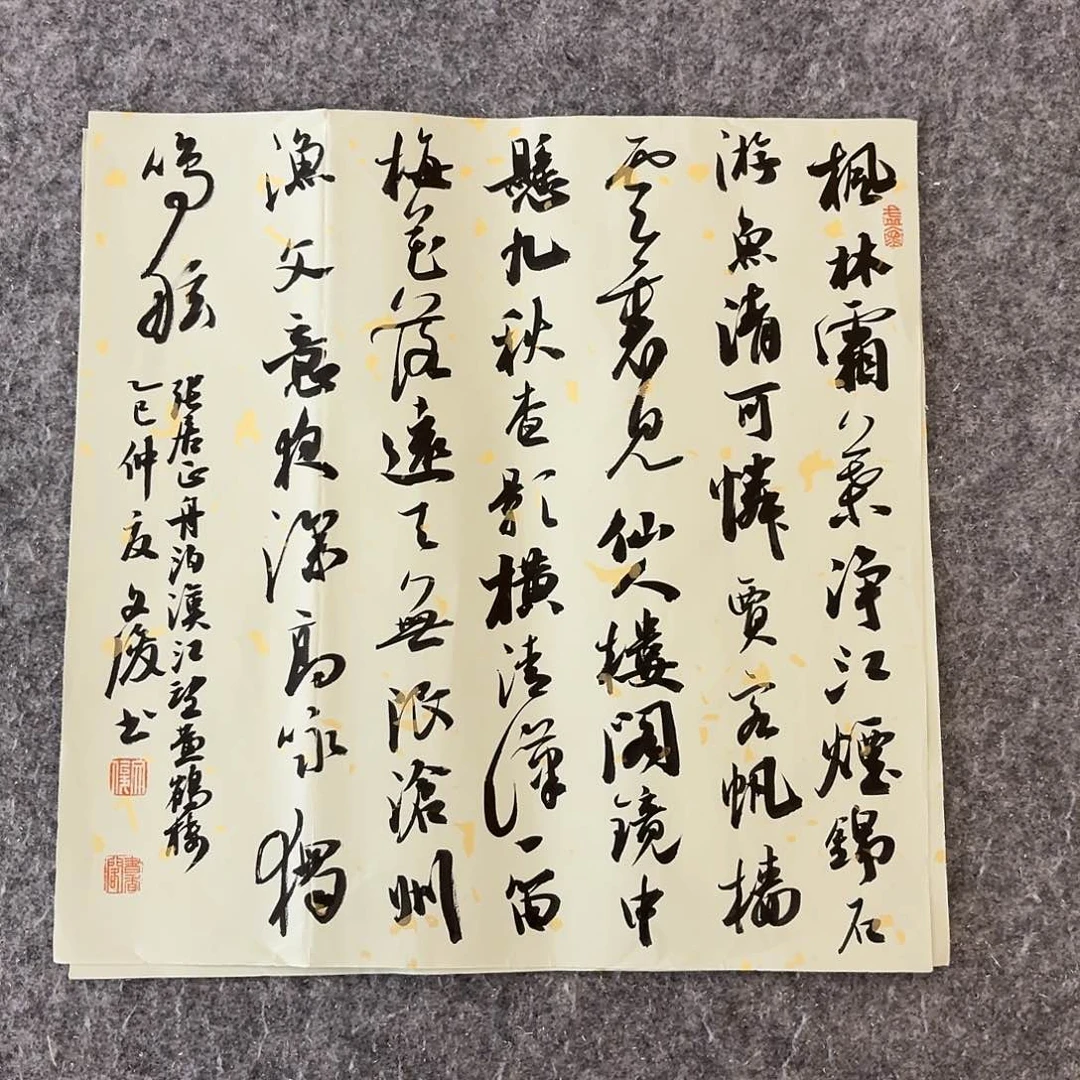 楓林霜葉淨江煙錦石
游魚清可憐賈客帆檣
雲裏見仙人樓閣鏡中
懸九秋查影橫清漢一笛
梅花落遠天無限滄州
漁父意夜深高咏獨
鳴舷
張居正舟泊漢江望黃鶴樓
乙巳仲夏文书